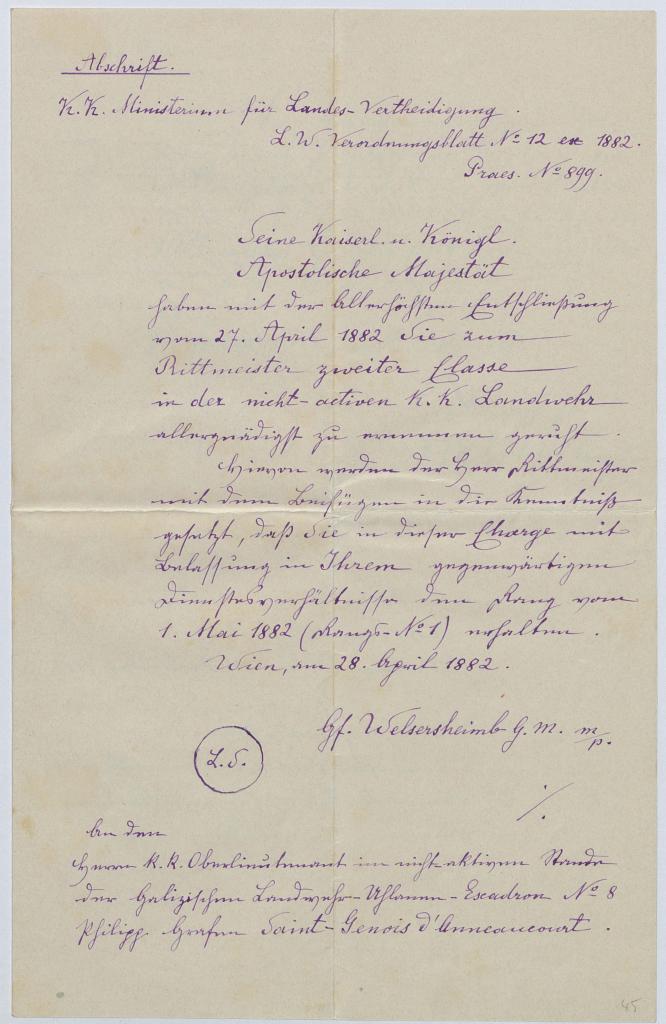 Abschrift.
K. K. Ministerium für Landes-Vertheidigung.
L. W. Verordnungsblatt No 12 ex 1882.
Praes. No 899.
Seine Kaiserl. u. Königl.
Apostolische Majestät
haben mit der Allerhöchsten Entschließung
vom 27. April 1882 Sie zum
Rittmeister zweiter Classe
in der nicht-activen K. K. Landwehr
allergnädigst zu ernennen geruht.
Hievon werden der Herr Rittmeister
mit dem Beifügen in die Kenntniß
gesetzt, daß Sie in dieser Charge mit
Belassung in Ihrem gegenwärtigen
Dienstesverhältnisse den Rang vom
1. Mai 1882 (Rangs-No 1) erhalten.
Wien, am 28. April 1882.
Gf. Welsersheimb G. M. m/p.
L. S.
./.
An den
Herrn K. K. Oberlieutenant im nicht-aktiven Stande
der Galizischen Landwehr-Uhlanen-Escadron No 8
Philipp Grafen Saint-Genois d'Anneaucourt.
45